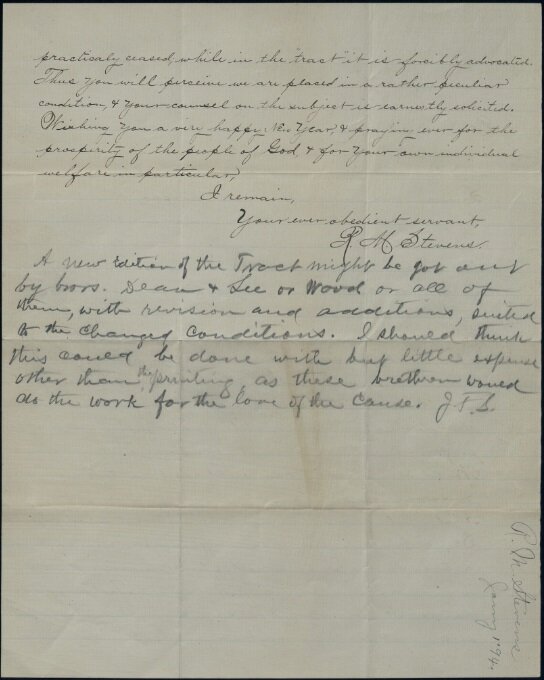 practicaly ceased, while in the "tract" it is forcibly advocated.
Thus you will perceive we are placed in a rather peculiar
condition, & your counsel on the subject is earnestly solicited.
Wishing you a very happy New Year, & praying ever for the
prosperity of the people of God, & for your own individual
welfare in particular,
I remain,
Your ever obedient servant,
R. M Stevens.
A new Edition of the Tract might be got out
by bros. Dean & Lee or Wood or all of
them, with revision and additions, suited
to the changed conditions. I should think
this could be done with but little expense
other than the printing, as these brethren would
do the work for the love of the cause. J. F. S.
R. M Stevens
Jany 1 '94.